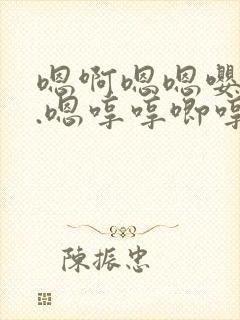 嗯啊嗯嗯嘤
.嗯哼哼唧哼
陳振忠